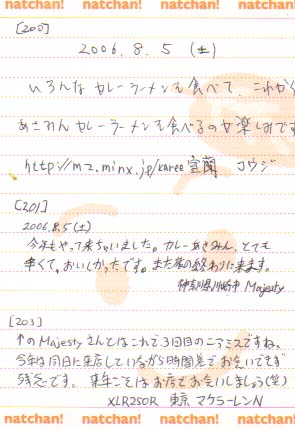 natchan! natchan! natchan! natchan!
[200]
2006.8.5(土)
いろんな カレーラーメンを食べて、これから
あさみん カレーラーメンを食べるのが楽しみです
http://mz.minx.jp/karee 室蘭 コウジ
[201]
2006.8.5(土)
今年もやって来ちゃいました。カレーあさみん、とても
辛くて、おいしかったです。また夏の終わりに来ます。
神奈川県川崎市 Majesty
[203]
↑のMajestyさんとはこれで3回目のニアミスですね。
今年は同日に来店していながら時間差でお会いできず
残念です。来年こそはお店でお会いしましょう(笑)
XLR250R 東京 マクラーレンN
natchan! natchan! natchan! natchan!